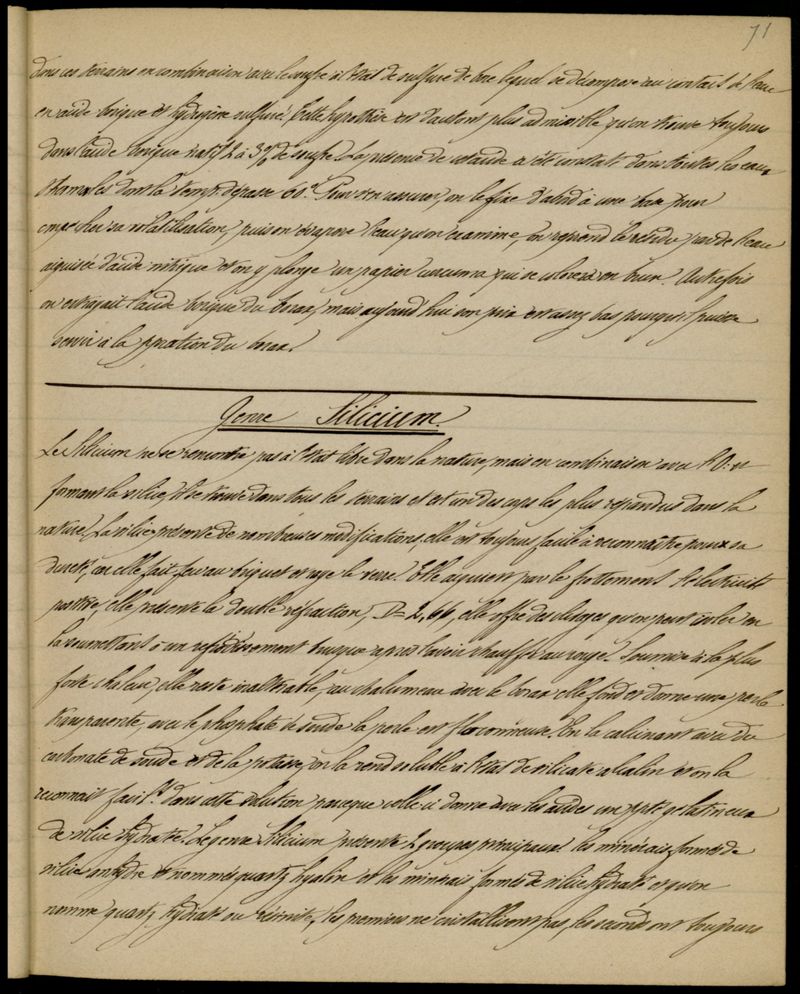 71
dans ces terrains en combinaison avec le soufre à l'état de sulfure de bore lequel se décompose au contact de l'eau
en acide borique et hydrogène sulfuré. Cette hypothèse est d'autant plus admissible qu'on trouve toujours
dans l'acide borique natif 2 à 3% de soufre. La présence de cet acide a été constatée dans toutes les eaux
thermales dont la temp. dépasse 60°. Pour s'en assurer, on le fixe d'abord à une base pour
empêcher sa volatilisation, puis on évapore l'eau qu'on examine, on reprend le résidu par de l'eau
aiguisée d'acide nitrique et on y plonge un papier curcuma qui se colorera en brun. Autrefois
on extrayait l'acide borique du borax, mais aujourd'hui son prix est assez bas pour qu'il puisse
servir à la pration du borax.
Genre Silicium.
Le Silicium ne se rencontre pas à l'état libre dans la nature, mais en combinaison avec l'O. et
formant la silice, il se trouve dans tous les terrains et est un des corps les plus répandus dans la
nature. La silice présente de nombreuses modifications, elle est toujours facile à reconnaître par sa
dureté, car elle fait feu au briquet et raye le verre. Elle acquiert par le frottement l'électricité
positive, elle présente la double réfraction, D = 2,66, elle offre des clivages qu'on peut isoler en
la soumettant à un refroidissement brusque après l'avoir chauffée au rouge. Soumise à la plus
forte chaleur, elle reste inaltérable, au chalumeau avec le borax elle fond et donne une perle
transparente, avec le phosphate de soude la perle est floconneuse. En la calcinant avec du
carbonate de soude et de la potasse, on la rend soluble à l'état de silicate alcalin et on la
reconnait facilt. dans cette solution parceque celle-ci donne avec les acides un ppté gélatineux
de silice hydratée. Le genre Silicium présente 2 groupes principaux les minérais formés de
silice anhydre et nommés quartz hyalin et les minérais formés de silice hydratée et qu'on
nomme quartz hydraté ou résinite, les premiers ne cristallisent pas, les seconds ont toujours